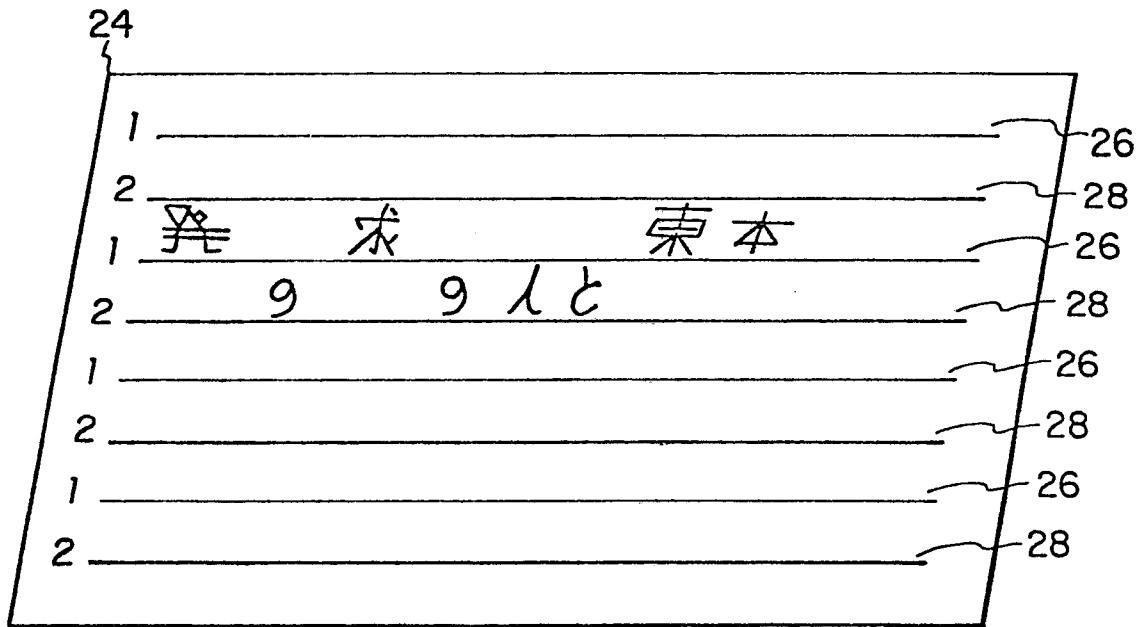 24
1 26
2 28
1 発 求 東 本 26
2 の の と 28
1 26
2 28
1 26
2 28